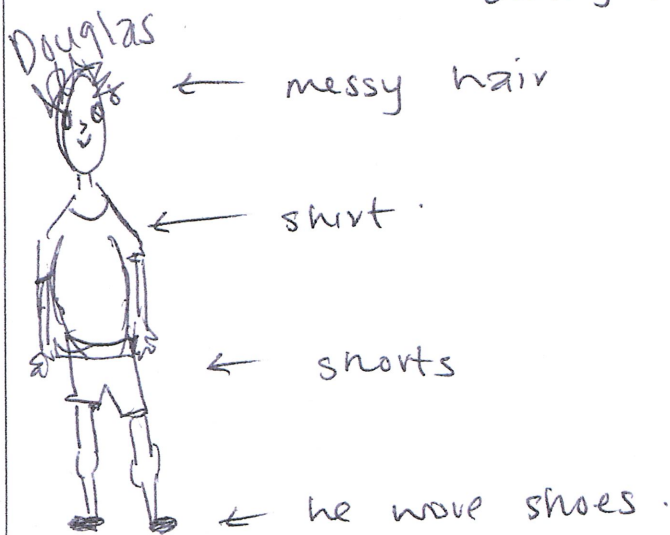 Douglas
messy hair
shirt.
shorts
he wore shoes.